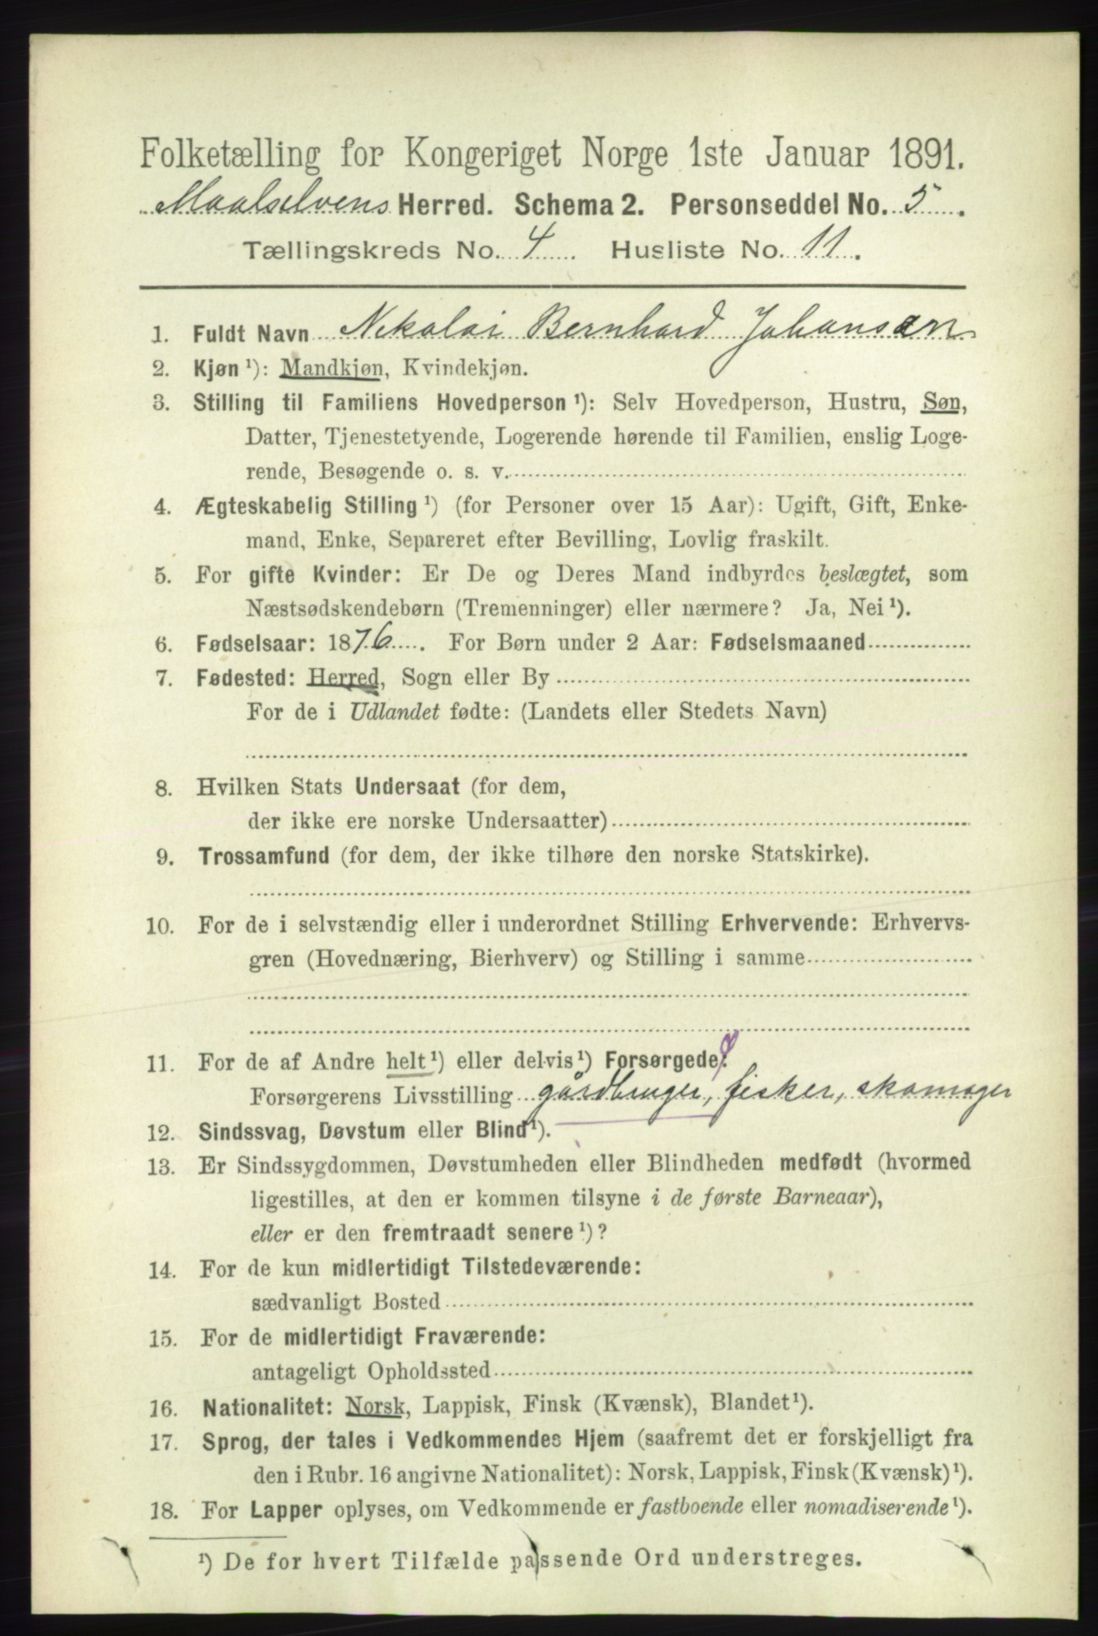 Folketælling for Kongeriget Norge 1ste Januar 1891.
Maalselvens Herred. Schema 2. Personseddel No. 5.
Tællingskreds No. 4. Husliste No. 11.
1. Fuldt Navn Nikolai Bernhard Johansen
2. Kjøn ¹): Mandkjøn, Kvindekjøn.
3. Stilling til Familiens Hovedperson ¹): Selv Hovedperson, Hustru, Søn,
Datter, Tjenestetyende, Logerende hørende til Familien, enslig Loge-
rende, Besøgende o. s. v.
4. Ægteskabelig Stilling ¹) (for Personer over 15 Aar): Ugift, Gift, Enke-
mand, Enke, Separeret efter Bevilling, Lovlig fraskilt.
5. For gifte Kvinder: Er De og Deres Mand indbyrdes beslægtet, som
Næstsødskendebørn (Tremenninger) eller nærmere? Ja, Nei ¹).
6. Fødselsaar: 1876. For Børn under 2 Aar: Fødselsmaaned
7. Fødested: Herred, Sogn eller By
For de i Udlandet fødte: (Landets eller Stedets Navn)
8. Hvilken Stats Undersaat (for dem,
der ikke ere norske Undersaatter)
9. Trossamfund (for dem, der ikke tilhøre den norske Statskirke).
10. For de i selvstændig eller i underordnet Stilling Erhvervende: Erhvervs-
gren (Hovednæring, Bierhverv) og Stilling i samme
11. For de af Andre helt ¹) eller delvis ¹) Forsørgede:
Forsørgerens Livsstilling gårdbruger, fisker, skomager
12. Sindssvag, Døvstum eller Blind ¹).
13. Er Sindssygdommen, Døvstumheden eller Blindheden medfødt (hvormed
ligestilles, at den er kommen tilsyne i de første Barneaar),
eller er den fremtraadt senere ¹)?
14. For de kun midlertidigt Tilstedeværende:
sædvanligt Bosted
15. For de midlertidigt Fraværende:
antageligt Opholdssted
16. Nationalitet: Norsk, Lappisk, Finsk (Kvænsk), Blandet ¹).
17. Sprog, der tales i Vedkommendes Hjem (saafremt det er forskjelligt fra
den i Rubr. 16 angivne Nationalitet): Norsk, Lappisk, Finsk (Kvænsk) ¹).
18. For Lapper oplyses, om Vedkommende er fastboende eller nomadiserende ¹).
¹) De for hvert Tilfælde passende Ord understreges.